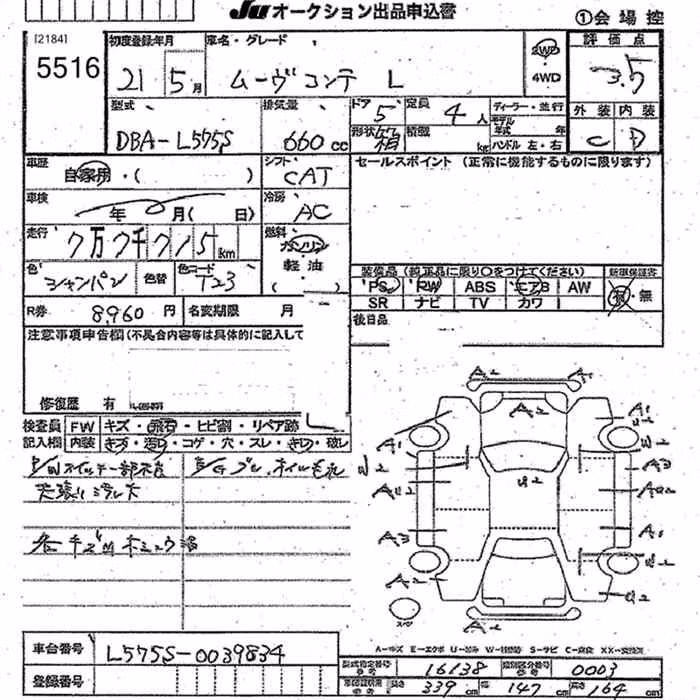 JU オークション出品申込書
①会場控
[2184]
5516
初度登録年月
21 5月
車名・グレード
ムーヴコンテ L
2WD
4WD
評価点
3.5
型式
DBA-L575S
排気量
660 cc
ドア 5
定員 4 人
形状 箱
積載 kg
ディーラー・並行
モデル年式 年
ハンドル 左・右
外装 内装
C D
車歴
自家用・( )
シフト
CAT
セールスポイント (正常に機能するものに限ります)
車検
年 月( 日)
冷房
AC
走行
7万7千715 km
燃料
ガソリン
軽油
色
シャンパン
色替
色コード
T23
装備品 (純正品に限り○をつけてください)
新車保証書
PS RW ABS エアB AW
SR ナビ TV カワ
有・無
R券 8,960 円
名変期限 月
後日品
注意事項申告欄(不具合内容等は具体的に記入して
修復歴 有
検査員記入欄
FW キズ・飛石・ヒビ割・リペア跡
内装 キズ・汚れ・コゲ・穴・スレ・キレ・破レ
P/Wスイッチ一部不良
E/Gブレ、オイルもれ
天張りミダレ大
A2 A1
A2
A1 A1
W2 W2
U2
A3
AU2 AU2
A3 A1
W2
A2
U2
A2
スペア
A-キズ E-エクボ U-凹み W-補修跡 S-サビ C-腐食 XX-交換済
車台番号 L575S-0039834
登録番号
型式指定番号 参考 16138
類別区分番号 参考 0003
車両証明用 参考
長さ 339 cm 幅 147 cm 高さ 164 cm